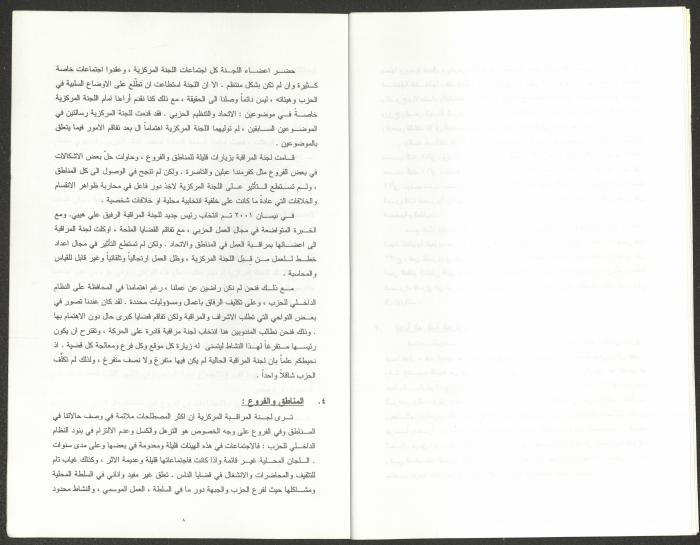 حضر اعضاء اللجنة كل اجتماعات اللجنة المركزية ، وعقدوا اجتماعات خاصة
كثيرة وان لم تكن بشكل منتظم . الا ان اللجنة استطاعت ان تطّلع على الاوضاع السلبية في
الحزب وهيئاته ، ليس دائماً وصلنا الى الحقيقة ، مع ذلك كنا نقدم أراءنا امام اللجنة المركزية
خاصةً في موضوعين : الاتحاد والتنظيم الحزبي . فقد قدمت للجنة المركزية رسالتين في
الموضوعين السابقين ، لم توليهما اللجنة المركزية اهتماماً ال بعد تفاقم الامور فيما يتعلق
بالموضوعين .
قامت لجنة المراقبة بزيارات قليلة للمناطق والفروع ، وحاولت حلّ بعض الاشكالات
في بعض الفروع مثل كفرمندا عبلين والناصرة . ولكن لم تنجح في الوصول الى كل المناطق
، ولم تستطع التأثير على اللجنة المركزية لاخذ دور فاعل في محاربة ظواهر الانقسام
والخلافات التي عادةً ما كانت على خلفية انتخابية محلية او خلافات شخصية .
في نيسان ٢٠٠١ تم انتخاب رئيس جديد للجنة المراقبة الرفيق علي هيبي. ومع
الخبرة المتواضعة في مجال العمل الحزبي ، مع تفاقم القضايا الملحة ، اوكلت لجنة المراقبة
الى اعضائها بمراقبة العمل في المناطق والاتحاد . ولكن لم تستطع التأثير في مجال اعداد
خطط للعمل من قبل اللجنة المركزية ، وظل العمل ارتجالياً وتلقائياً وغير قابل للقياس
والمحاسبة .
مع ذلك فنحن لم نكن راضين عن عملنا ، رغم اهتمامنا في المحافظة على النظام
الداخلي للحزب ، وعلى تكليف الرفاق باعمال ومسؤوليات محددة . لقد كان عندنا تصور في
بعض النواحي التي تطلب الاشراف والمراقبة ولكن تفاقم قضايا كبرى حال دون الاهتمام بها
. وذلك فنحن نطالب المندوبين هنا انتخاب لجنة مراقبة قادرة على الحركة ، ونقترح ان يكون
رئيسها متفرغاً لهذا النشاط ليتسنى له زيارة كل موقع وكل فرع ومعالجة كل قضية . اذ
نحيطكم علماً بان لجنة المراقبة الحالية لم يكن فيها متفرغ ولا نصف متفرغ ، ولذلك لم تكلّف
الحزب شاقلاً واحداً .
٤. المناطق والفروع :
ترى لجنة المراقبة المركزية ان اكثر المصطلحات ملائمة في وصف حالاتنا في
المناطق وفي الفروع على وجه الخصوص هو الترهل والكسل وعدم الالتزام في بنود النظام
الداخلي للحزب : فالاجتماعات في هذه الهيئات قليلة ومعدومة في بعضها وعلى مدى سنوات
. اللجان المحلية غير قائمة واذا كانت فاجتماعاتها قليلة وعديمة الاثر ، وكذلك غياب تام
للتثقيف والمحاضرات والانشغال في قضايا الناس . تعلق غير مفيد واناني في السلطة المحلية
ومشاكلها حيث لفرع الحزب والجبهة دور ما في السلطة ، العمل الموسمي ، والنشاط محدود
٨